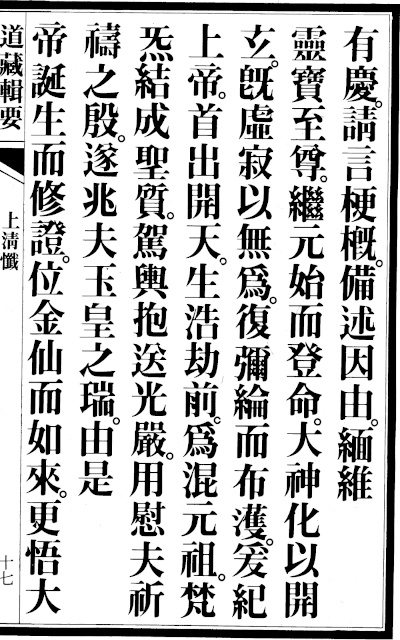 有慶。請言梗槪。備述因由。緬維
靈寶至尊。繼元始而登命。大神化以開
玄。旣虛寂以無爲。復彌綸而布濩。爰紀
上帝。首出開天。生浩劫前。爲混元祖。梵
炁結成聖質。駕輿抱送光嚴。用慰夫祈
禱之殷。遂兆夫玉皇之瑞。由是
帝誕生而修證。位金仙而如來。更悟大
道藏輯要
上清懺
十七